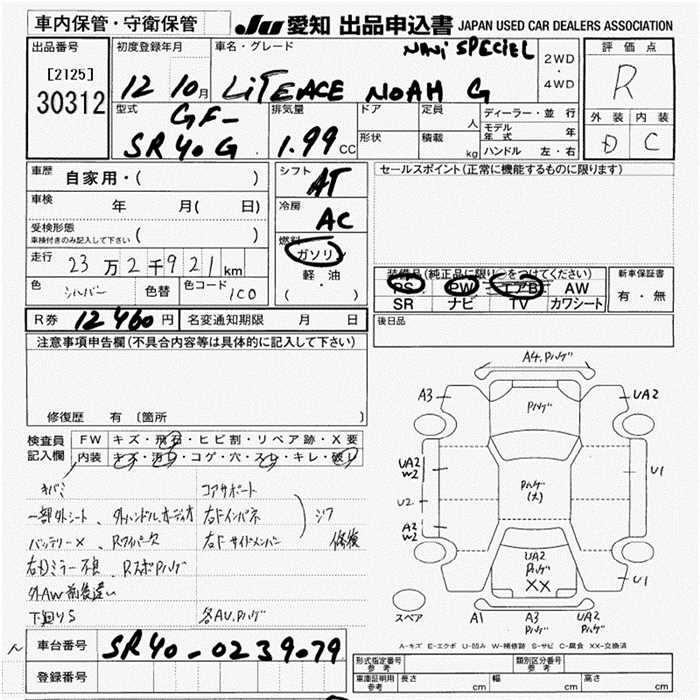 車内保管・守衛保管
JU 愛知 出品申込書 JAPAN USED CAR DEALERS ASSOCIATION
出品番号
[2125]
30312
初度登録年月
12 10月
車名・グレード
LiTEACE NOAH G
NAVI SPECIEL
2WD
・
4WD
評価点
R
外装 内装
D C
型式
GF-
SR40G
排気量
1.99 CC
ドア
定員
人
形状
積載
kg
ディーラー・並行
モデル年式 年
ハンドル 左・右
車歴 自家用・( )
車検 年 月( 日)
受検形態
車検付きのみ記入して下さい ( )
走行 23万2千921km
色 シルバー 色替 色コード 1C0
シフト AT
冷房 AC
燃料
ガソリン
軽・油
( )
セールスポイント(正常に機能するものに限ります)
装備品(純正品に限り○をつけてください)
PS PW エアB AW
SR ナビ TV カワシート
新車保証書
有・無
後日品
R券 12460円 名変通知期限 月 日
注意事項申告欄(不具合内容等は具体的に記入して下さい)
修復歴 有 〔箇所
検査員記入欄
FW キズ・飛石・ヒビ割・リペア跡・X要
内装 キズ・汚れ・コゲ・穴・スレ・キレ・破レ
キバミ
一部外シート、外ハンドル、オーディオ
バッテリーX、Rワイパー欠
右Dミラー不良、RスポPハゲ
外AW前後違い
下廻りS
コアサポート
右Fインパネ
右Fサイドメンバー
修復
各AU.Pハゲ
A4.Pハゲ
A3
UA2
Pハゲ
UA2
W2
Pハゲ
(大)
U1
U2
A2
W2
UA2
Pハゲ
XX
U1
スペア
A1
A3
Pハゲ
UA2
Pハゲ
A-キズ E-エクボ U-凹み W-補修跡 S-サビ C-腐食 XX-交換済
車台番号 SR40-0239079
登録番号
形式指定番号
参考
類別区分番号
参考
車庫証明用
参考
長さ cm
幅 cm
高さ cm